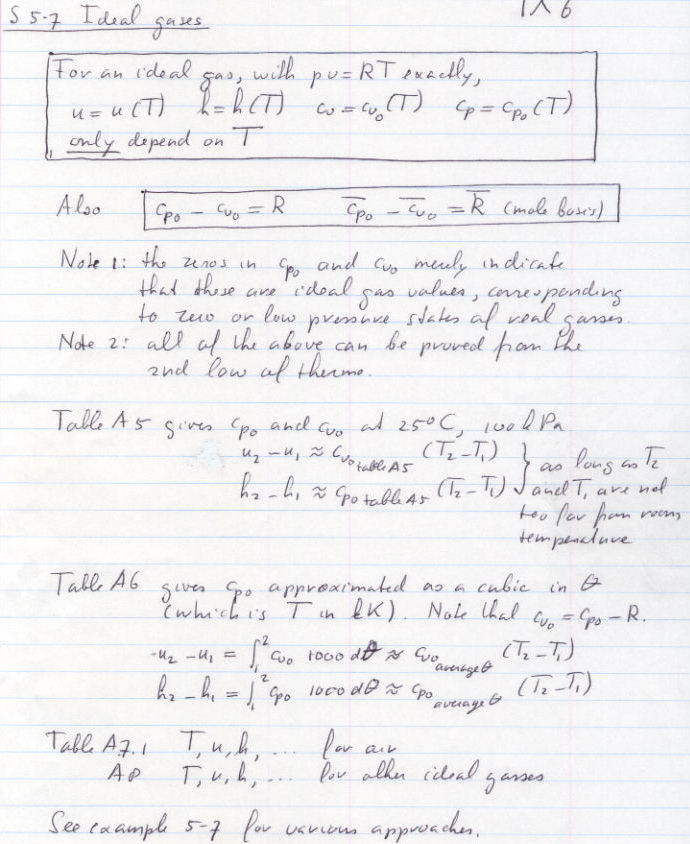 § 5-7 Ideal gases
For an ideal gas, with pv = RT exactly,
u = u(T) h = h(T) cv = cv₀(T) cp = cp₀(T)
only depend on T
Also cp₀ - cv₀ = R c̅p₀ - c̅v₀ = R̅ (mole basis)
Note 1: the zeros in cp₀ and cv₀ merely indicate
that these are ideal gas values, corresponding
to zero or low pressure states of real gasses.
Note 2: all of the above can be proved from the
2nd law of thermo.
Table A5 gives cp₀ and cv₀ at 25°C, 100 kPa
u₂ - u₁ ≈ cv₀ table A5 (T₂ - T₁) } as long as T₂
h₂ - h₁ ≈ cp₀ table A5 (T₂ - T₁) } and T₁ are not
too far from room
temperature
Table A6 gives cp₀ approximated as a cubic in θ
(which is T in kK). Note that cv₀ = cp₀ - R.
u₂ - u₁ = ∫₁² cv₀ 1000 dθ ≈ cv₀ average θ (T₂ - T₁)
h₂ - h₁ = ∫₁² cp₀ 1000 dθ ≈ cp₀ average θ (T₂ - T₁)
Table A7.1 T, u, h, ... for air
A8 T, u, h, ... for other ideal gasses
See example 5-7 for various approaches.